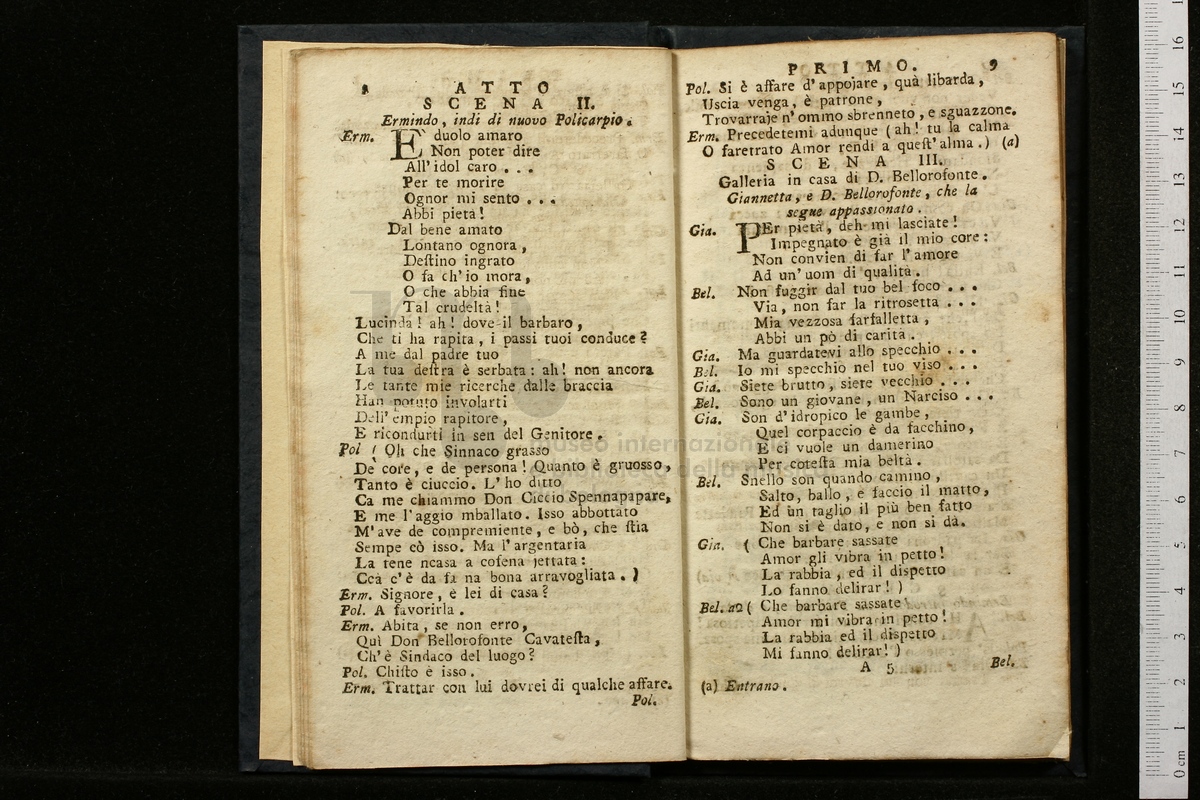 8
ATTO
SCENA II.
Ermindo, indi di nuovo Policarpio.
Erm. E' duolo amaro
Non poter dire
All' idol caro ...
Per te morire
Ognor mi sento ...
Abbi pietà!
Dal bene amato
Lontano ognora,
Deſtino ingrato
O fa ch' io mora,
O che abbia fine
Tal crudeltà!
Lucinda! ah! dove il barbaro,
Che ti ha rapita, i passi tuoi conduce?
A me dal padre tuo
La tua deſtra è serbata: ah! non ancora
Le tante mie ricerche dalle braccia
Han potuto involarti
Dell' empio rapitore,
E ricondurti in sen del Genitore.
Pol ( Oh che Sinnaco grasso
De core, e de persona! Quanto è gruosso,
Tanto è ciuccio. L' ho ditto
Ca me chiammo Don Ciccio Spennapapare,
E me l' aggio mballato. Isso abbottato
M' ave de compremiente, e bò, che ſtia
Sempe cò isso. Ma l' argentaria
La tene ncasa a cofena jettata:
Ccà c' è da fa na bona arravogliata. )
Erm. Signore, è lei di casa?
Pol. A favorirla.
Erm. Abita, se non erro,
Quì Don Bellorofonte Cavateſta,
Ch' è Sindaco del luogo?
Pol. Chiſto è isso.
Erm. Trattar con lui dovrei di qualche affare.
Pol.
PRIMO. 9
Pol. Si è affare d' appojare, quà libarda,
Uscia venga, è patrone,
Trovarraje n' ommo sbrenneto, e sguazzone.
Erm. Precedetemi adunque (ah! tu la calma
O faretrato Amor rendi a queſt' alma.) (a)
SCENA III.
Galleria in casa di D. Bellorofonte.
Giannetta, e D. Bellorofonte, che la
segue appassionato.
Gia. PEr pietà, deh mi lasciate!
Impegnato è già il mio core:
Non convien di far l' amore
Ad un' uom di qualità.
Bel. Non fuggir dal tuo bel foco ...
Via, non far la ritrosetta ...
Mia vezzosa farfalletta,
Abbi un pò di carità.
Gia. Ma guardatevi allo specchio ...
Bel. Io mi specchio nel tuo viso ...
Gia. Siete brutto, siete vecchio ...
Bel. Sono un giovane, un Narciso ...
Gia. Son d' idropico le gambe,
Quel corpaccio è da facchino,
E ci vuole un damerino
Per coteſta mia beltà.
Bel. Snello son quando camino,
Salto, ballo, e faccio il matto,
Ed un taglio il più ben fatto
Non si è dato, e non si dà.
Gia. ( Che barbare sassate
Amor gli vibra in petto!
La rabbia, ed il dispetto
Lo fanno delirar! )
Bel. a2 ( Che barbare sassate
Amor mi vibra in petto!
La rabbia ed il dispetto
Mi fanno delirar! )
A 5 Bel.
(a) Entrano.
museo internazionale
della musica
0 cm 1 2 3 4 5 6 7 8 9 10 11 12 13 14 15 16